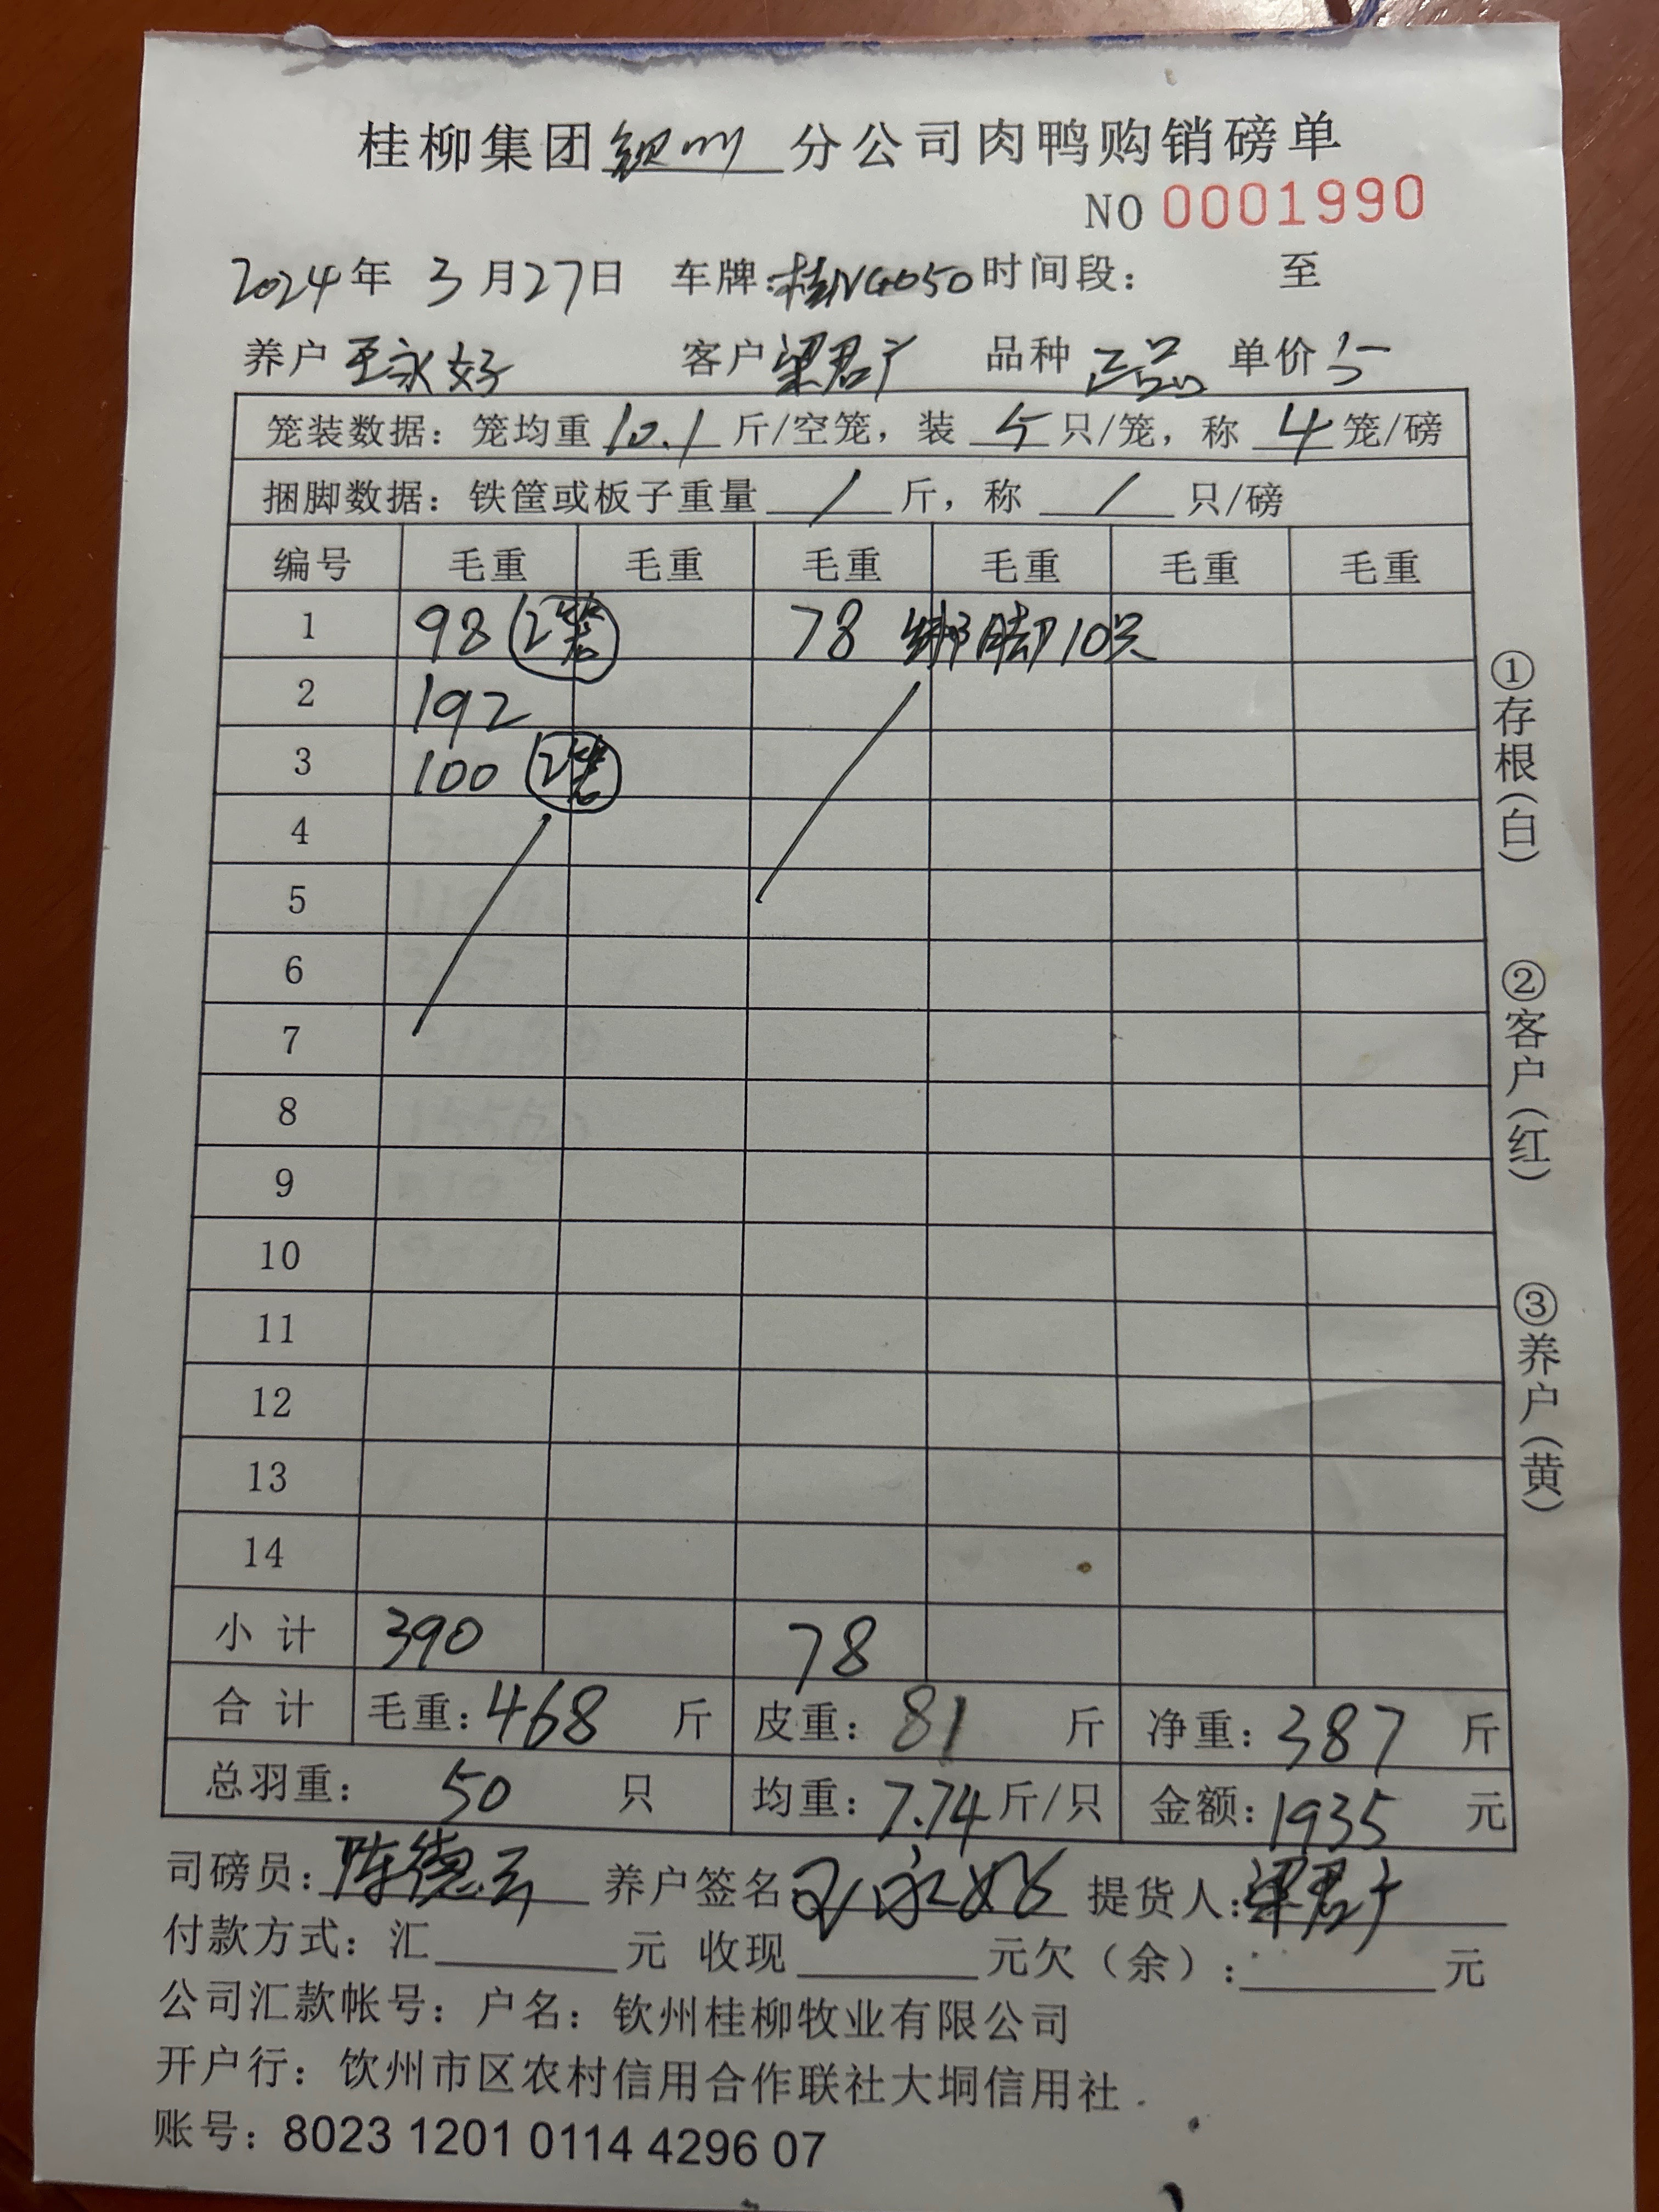 桂柳集团钦州分公司肉鸭购销磅单
NO 0001990
2024年 3月27日 车牌:桂NG050 时间段: 至
养户 王永好 客户 梁君广 品种 正品 单价 5
笼装数据：笼均重 10.1 斤/空笼，装 5 只/笼，称 4 笼/磅
捆脚数据：铁筐或板子重量 / 斤，称 / 只/磅
编号 毛重 毛重 毛重 毛重 毛重 毛重
1 98 78 绑脚10只
2 192
3 100
4
5
6
7
8
9
10
11
12
13
14
小计 390 78
合计 毛重：468 斤 皮重：81 斤 净重：387 斤
总羽重： 50 只 均重：7.74 斤/只 金额：1935 元
司磅员：陈德云 养户签名 王永好 提货人：梁君广
付款方式：汇 元 收现 元欠（余）： 元
公司汇款帐号：户名：钦州桂柳牧业有限公司
开户行：钦州市区农村信用合作联社大垌信用社
账号：8023 1201 0114 4296 07
①存根（白）
②客户（红）
③养户（黄）